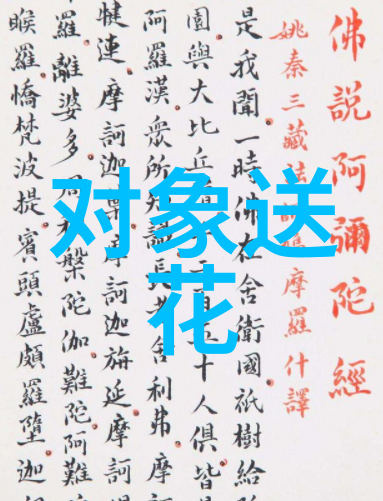 佛說阿彌陀經
姚秦三藏法摩羅什譯
是我聞一時佛在舍衛國祇樹給
園與大比丘十人俱皆
阿羅漢眾所知識長老舍利弗摩
犍連摩訶迦葉摩訶迦旃延摩訶
羅離婆多周利槃陀伽難陀阿難
睺羅憍梵波提賓頭盧頗羅墮迦
对象送
花